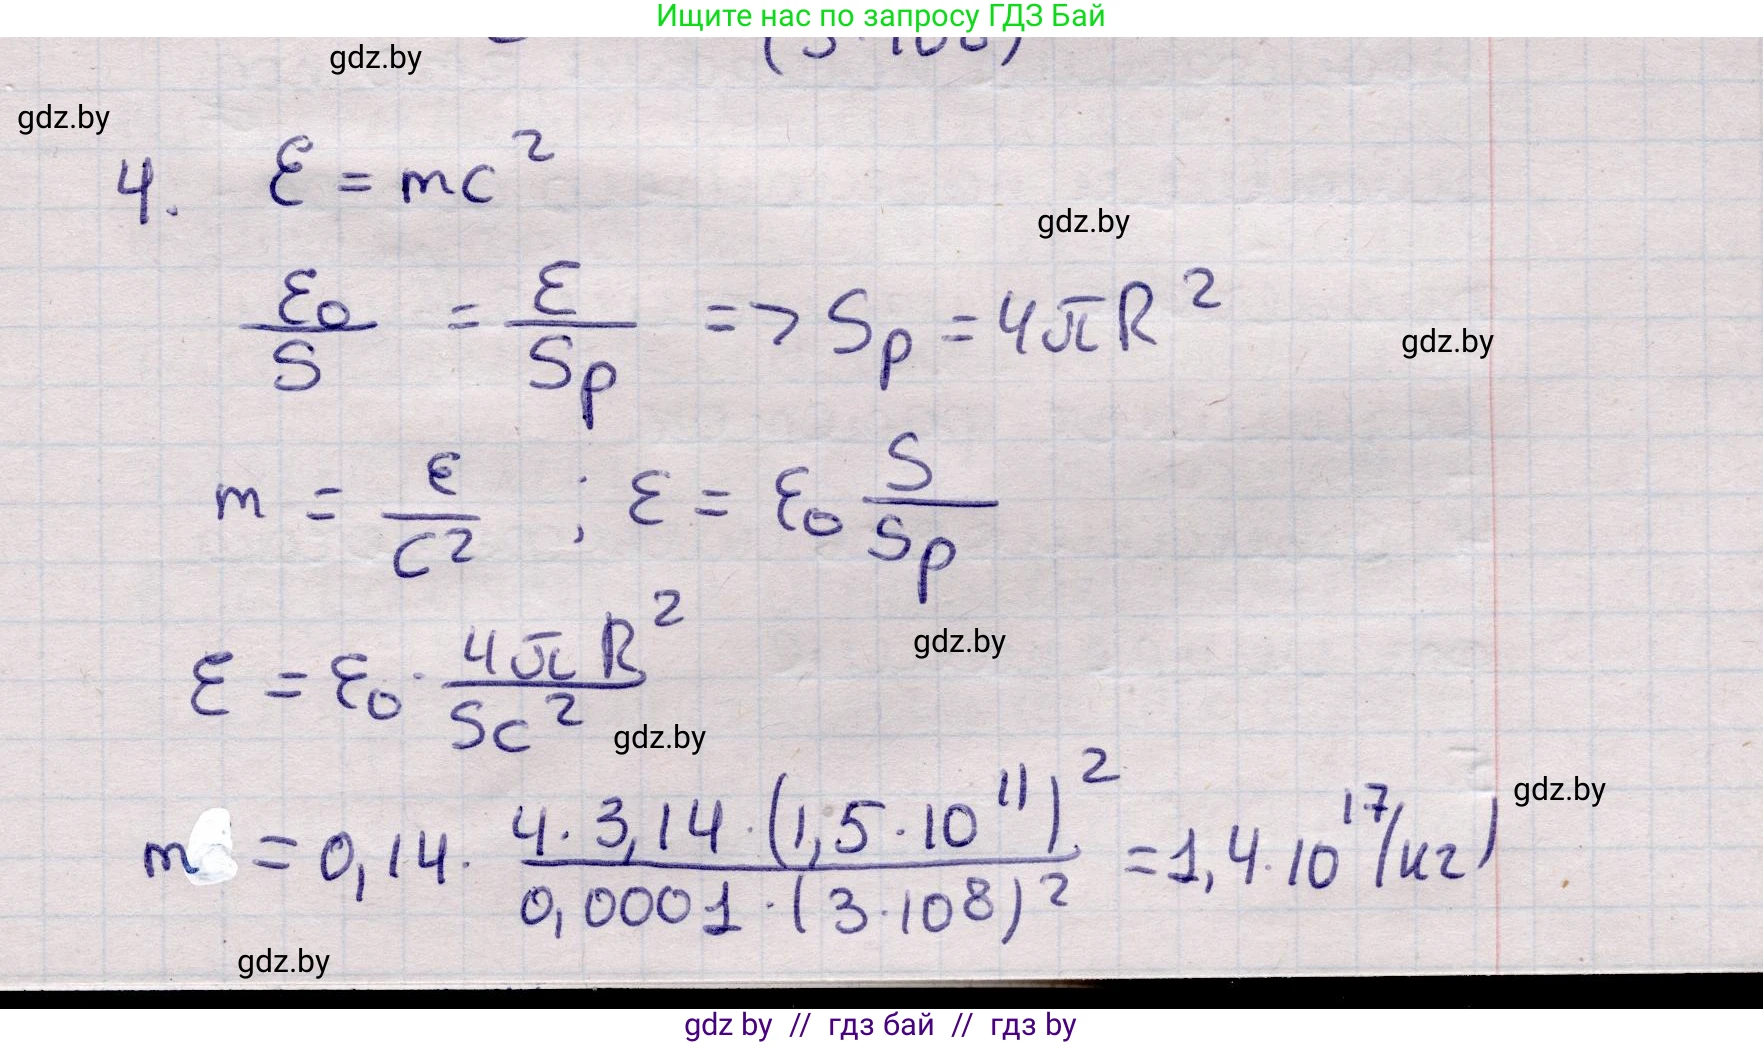 Ищите нас по запросу ГДЗ Бай
(3·10⁸)
gdz.by
gdz.by
4. ε = mc²
gdz.by
ε₀/S = ε/Sp => Sp = 4πR²
gdz.by
m = ε/c² ; ε = ε₀ S/Sp
gdz.by
ε = ε₀ · 4πR²/Sc²
gdz.by
gdz.by
m = 0,14 · 4·3,14·(1,5·10¹¹)²/0,0001·(3·10⁸)² = 1,4·10¹⁷(кг)
gdz.by
gdz by // гдз бай // гдз by